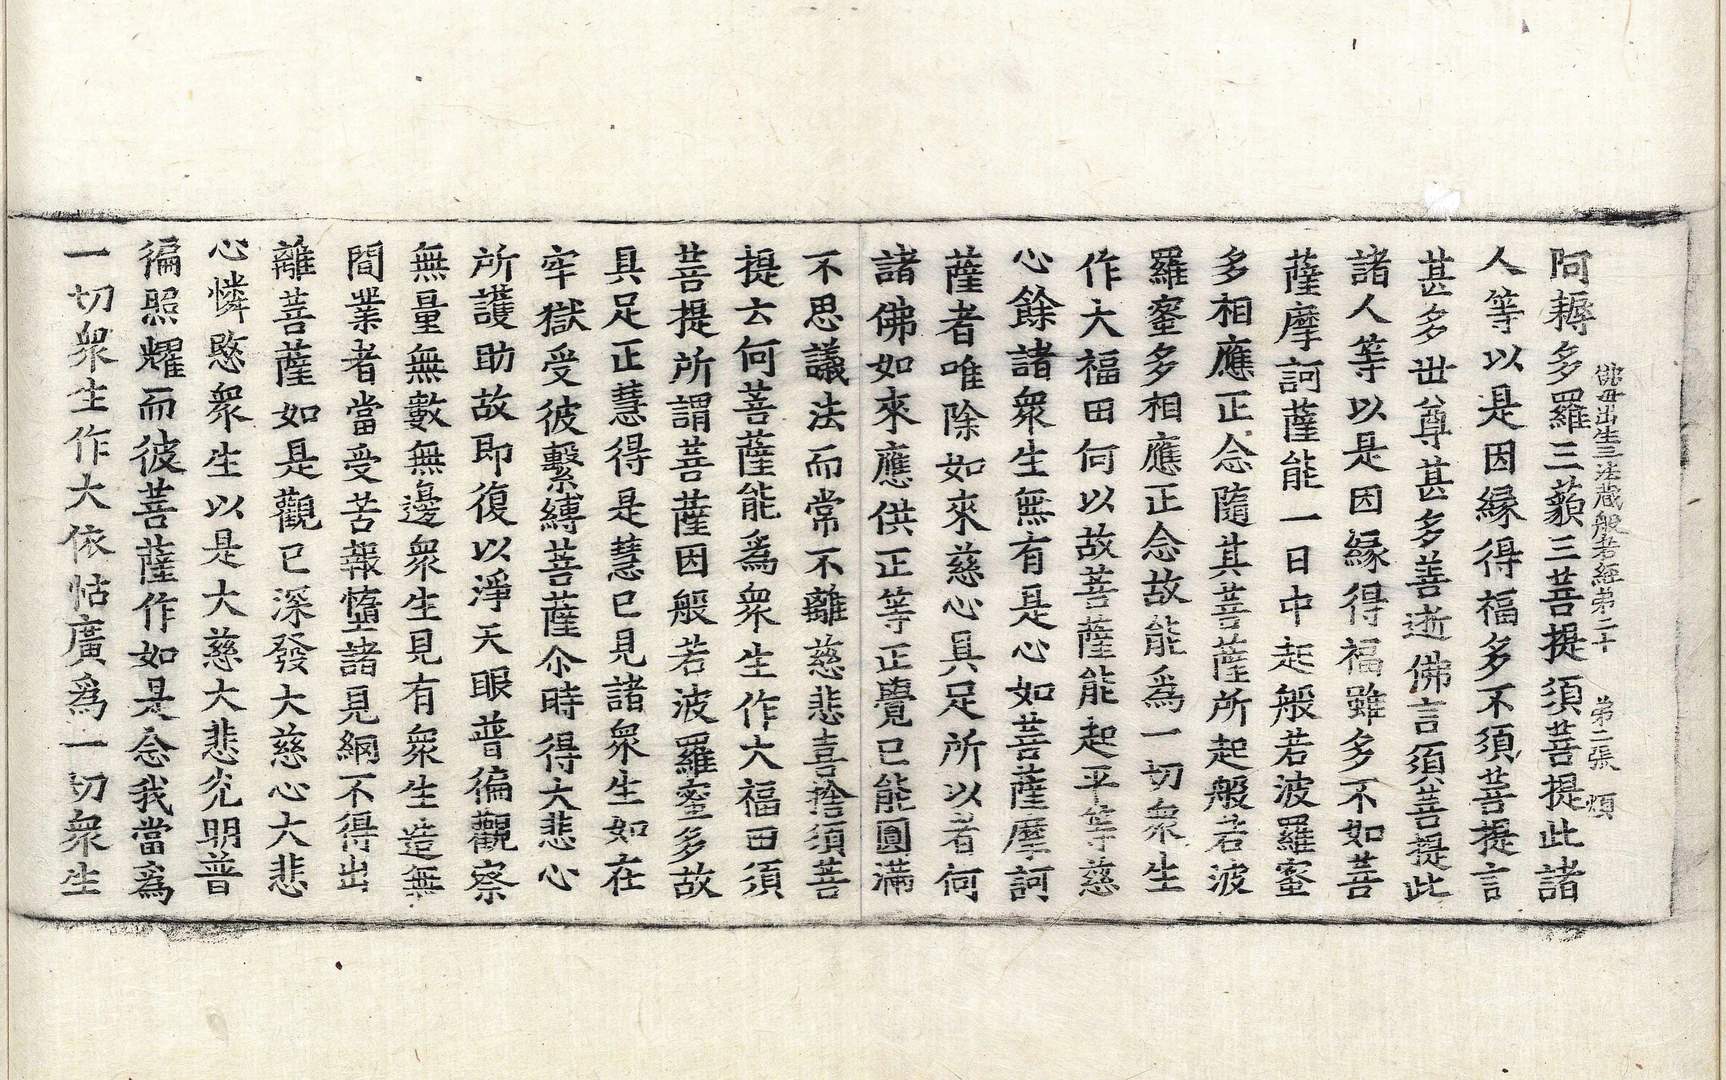 佛母出生三法藏般若經第二十 第二張 煩
阿耨多羅三藐三菩提須菩提此諸
人等以是因緣得福多不須菩提言
甚多世尊甚多善逝佛言須菩提此
諸人等以是因緣得福雖多不如菩
薩摩訶薩能一日中起般若波羅蜜
多相應正念隨其菩薩所起般若波
羅蜜多相應正念故能爲一切衆生
作大福田何以故菩薩能起平等慈
心餘諸衆生無有是心如菩薩摩訶
薩者唯除如來慈心具足所以者何
諸佛如來應供正等正覺已能圓滿
不思議法而常不離慈悲喜捨須菩
提云何菩薩能爲衆生作大福田須
菩提所謂菩薩因般若波羅蜜多故
具足正慧得是慧已見諸衆生如在
牢獄受彼繫縛菩薩尒時得大悲心
所護助故即復以淨天眼普徧觀察
無量無數無邊衆生見有衆生造無
間業者當受苦報憜諸見網不得出
離菩薩如是觀已深發大慈心大悲
心憐愍衆生以是大慈大悲光明普
徧照耀而彼菩薩作如是念我當爲
一切衆生作大依怙廣爲一切衆生